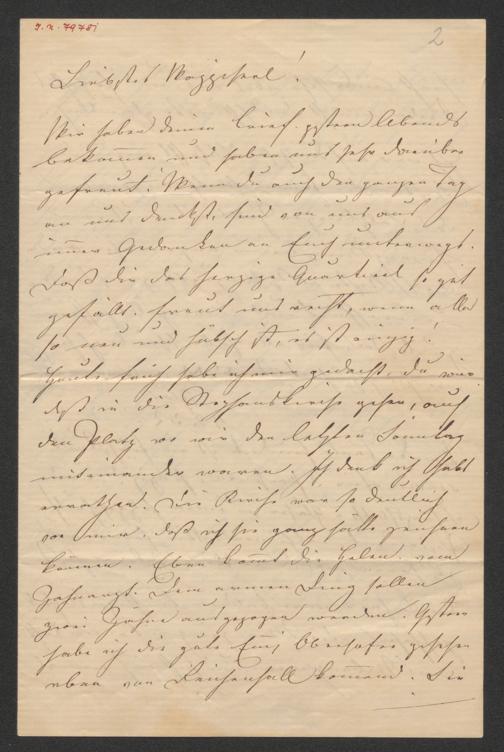 J. N. 79781
2
Liebstes Mopperl!
Wir haben deinen Brief gestern Abends
bekommen und haben uns sehr darüber
gefreut! Wenn du auch den ganzen Tag
an uns denkst, sind von uns aus
immer Gedanken an Euch unterwegs.
Daß dir das herzige Quartierl so gut
gefällt, freut uns recht, wenn alles
so neu und hübsch ist, es ist einzig!
Heute früh habe ich mir gedacht, du wir
dst in die Stephanskirche gehen, auf
den Platz wo wir den letzten Sonntag
miteinander waren. Ich denk ich habs
errathen. Die Kirche war so deutlich
vor mir, daß ich sie ganz hätte zeichnen
können. Eben komt die Helen vom
Zahnarzt. Dem armen Ding sollen
zwei Zähne ausgezogen werden. Gestern
habe ich die gute Emi Oberhofer gesehen
eben von Reichenhall komend. Sie